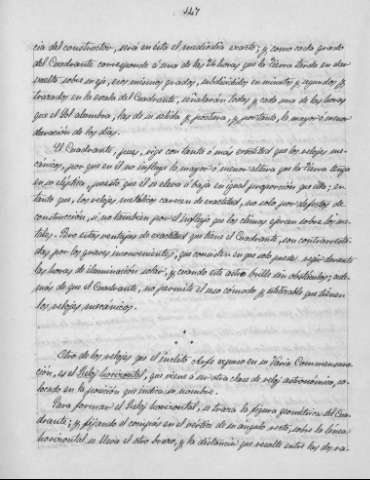 147
cia del constructor, será en éste el mediodía exacto; y como cada grado
del Cuadrante corresponde á una de las 24 horas que la Tierra tarda en dar
vuelta sobre su eje, esos mismos grados, subdivididos en minutos y segundos y
trazados en la escala del Cuadrante, señalarán todas y cada una de las horas
que el Sol alumbra, las de su salida y postura, y por tanto, la mayor ó menor
duración de los días.
El Cuadrante, pues, rige con tanta ó más exactitud que los relojes me-
cánicos, por que en él no influye la mayor ó menor altura que la Tierra tenga
en su elíptica, puesto que él se eleva ó baja en igual proporción que ella; en
tanto que, los relojes metálicos carecen de exactitud, no solo por defectos de
construcción, si no tambien por el influjo que los climas ejercen sobre los me-
tales. Pero estas ventajas de exactitud que tiene el Cuadrante, son contrarresta-
das por los graves inconvenientes, que consisten en que solo puede regir durante
las horas de iluminación solar, y cuando este astro brilla sin obstáculos; ade-
más de que el Cuadrante, no permite el uso cómodo y que tienen
los relojes mecánicos.
Otro de los relojes que el ínclito Arfe expuso en su Varia Commensura-
ción, es el Reloj horizontal, que viene á ser otra clase de reloj astronómico, co-
locado en la posición que indica su nombre.
Para formar el Reloj horizontal, se traza la figura geométrica del Cua-
drante; y fijando el compás en el vértice de su ángulo recto, sobre la línea
horizontal se lleva el otro brazo, y la distancia que resulte entre los dos ra-